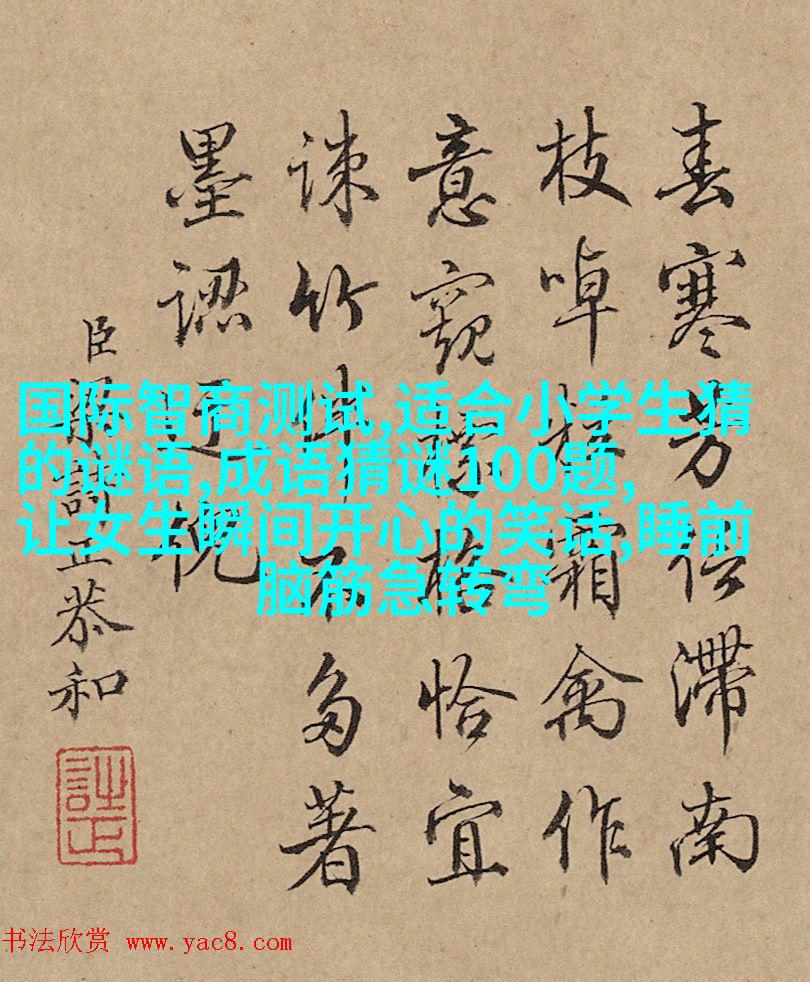 春寒芳信滯南
枝啅霜禽作
意窺踈格恰宜
竹不多著
墨認
臣梁詩正恭和
国际智商测试,适合小学生猜
的谜语,成语猜谜100题,
让女生瞬间开心的笑话,睡前
脑筋急转弯
书法欣赏 www.yac8.com